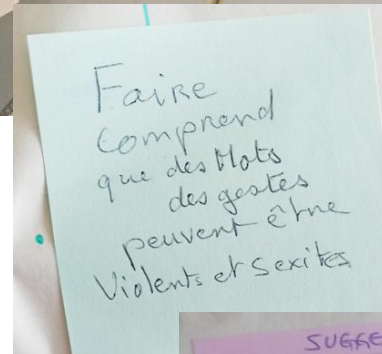 Faire
Comprend
que des Mots
des gestes
peuvent être
Violents et sexites
SUGGE